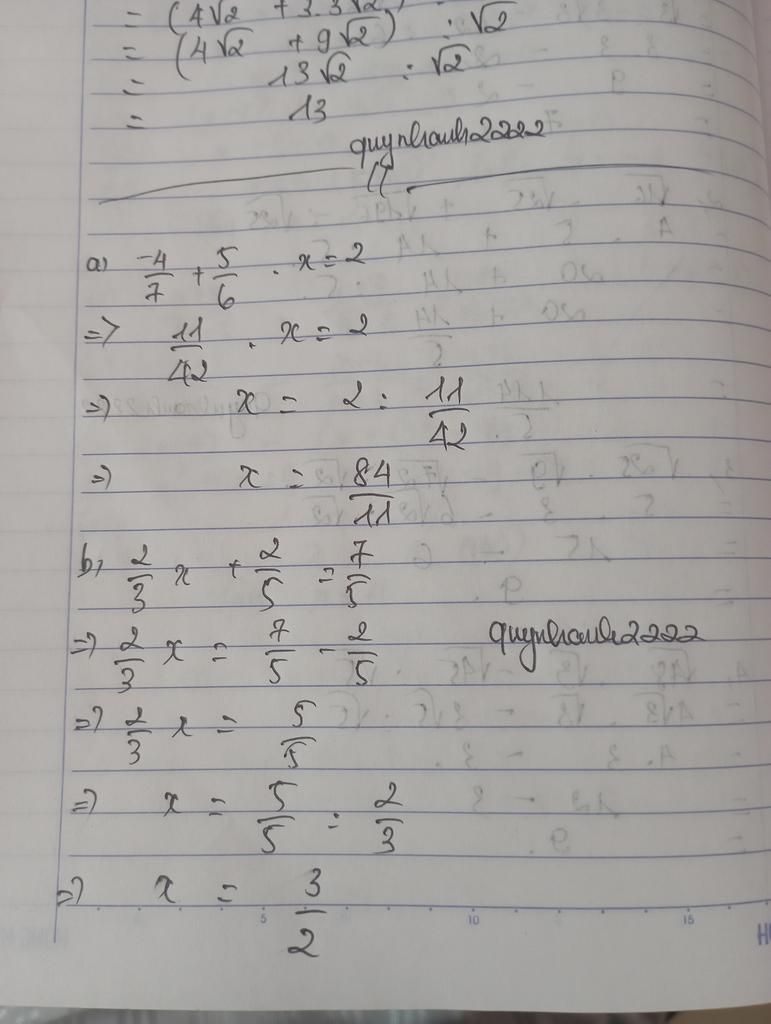 = (4√2 + 3.3√2)
= (4√2 + 9√2) : √2
= 13√2 : √2
= 13
quynhanh2222
a) -4/7 + 5/6 . x = 2
=> 11/42 . x = 2
=> x = 2 : 11/42
=> x = 84/11
b, 2/3 x + 2/5 = 7/5
=> 2/3 x = 7/5 - 2/5
quynhanh2222
=> 2/3 x = 5/5
=> x = 5/5 : 2/3
=> x = 3/2
5 10 15